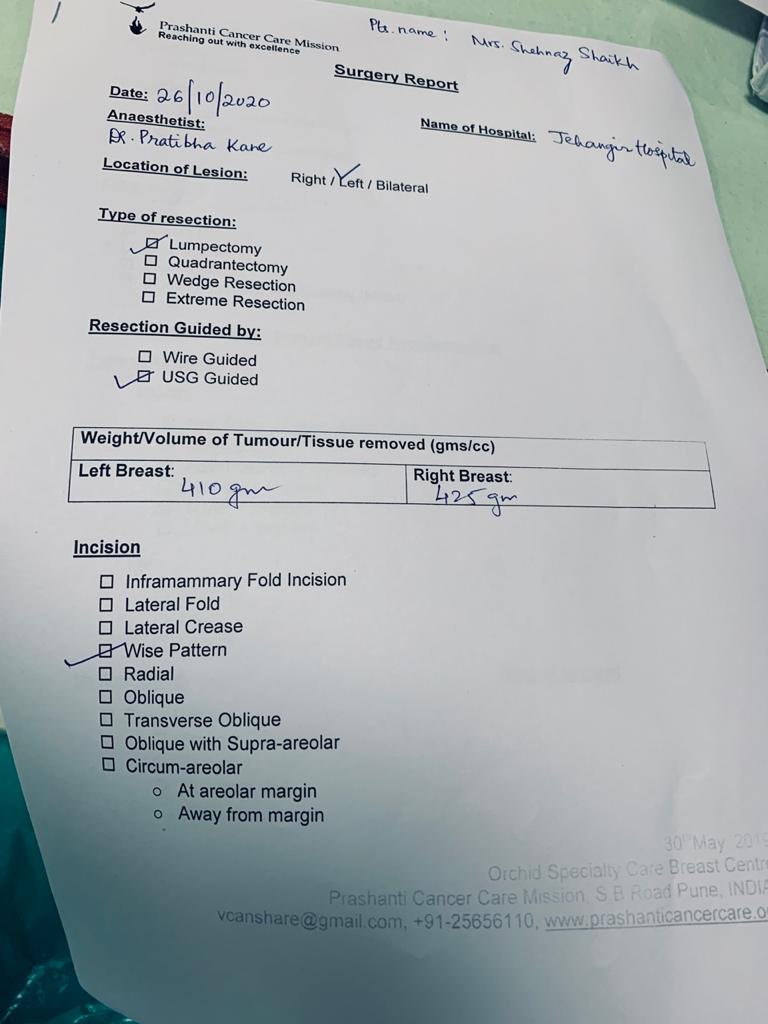 Prashanti Cancer Care Mission
Reaching out with excellence
Pts. name : Mrs. Shehnaz Shaikh
Surgery Report
Date: 26/10/2020
Anaesthetist:
Dr. Pratibha Kane
Name of Hospital: Jehangir Hospital
Location of Lesion: Right / Left / Bilateral
Type of resection:
Lumpectomy
Quadrantectomy
Wedge Resection
Extreme Resection
Resection Guided by:
Wire Guided
USG Guided
Weight/Volume of Tumour/Tissue removed (gms/cc)
Left Breast: 410 gm
Right Breast: 425 gm
Incision
Inframammary Fold Incision
Lateral Fold
Lateral Crease
Wise Pattern
Radial
Oblique
Transverse Oblique
Oblique with Supra-areolar
Circum-areolar
At areolar margin
Away from margin
30th May, 2019
Orchid Specialty Care Breast Centre
Prashanti Cancer Care Mission, S B Road Pune, INDIA
vcanshare@gmail.com, +91-25656110, www.prashanticancercare.o